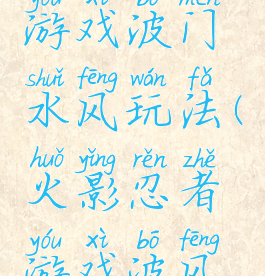 yóu xì bō mén
游戏波门
shuǐ fēng wán fǎ
水风玩法(
huǒ yǐng rěn zhě
火影忍者
yóu xì bō fēng
游戏波风